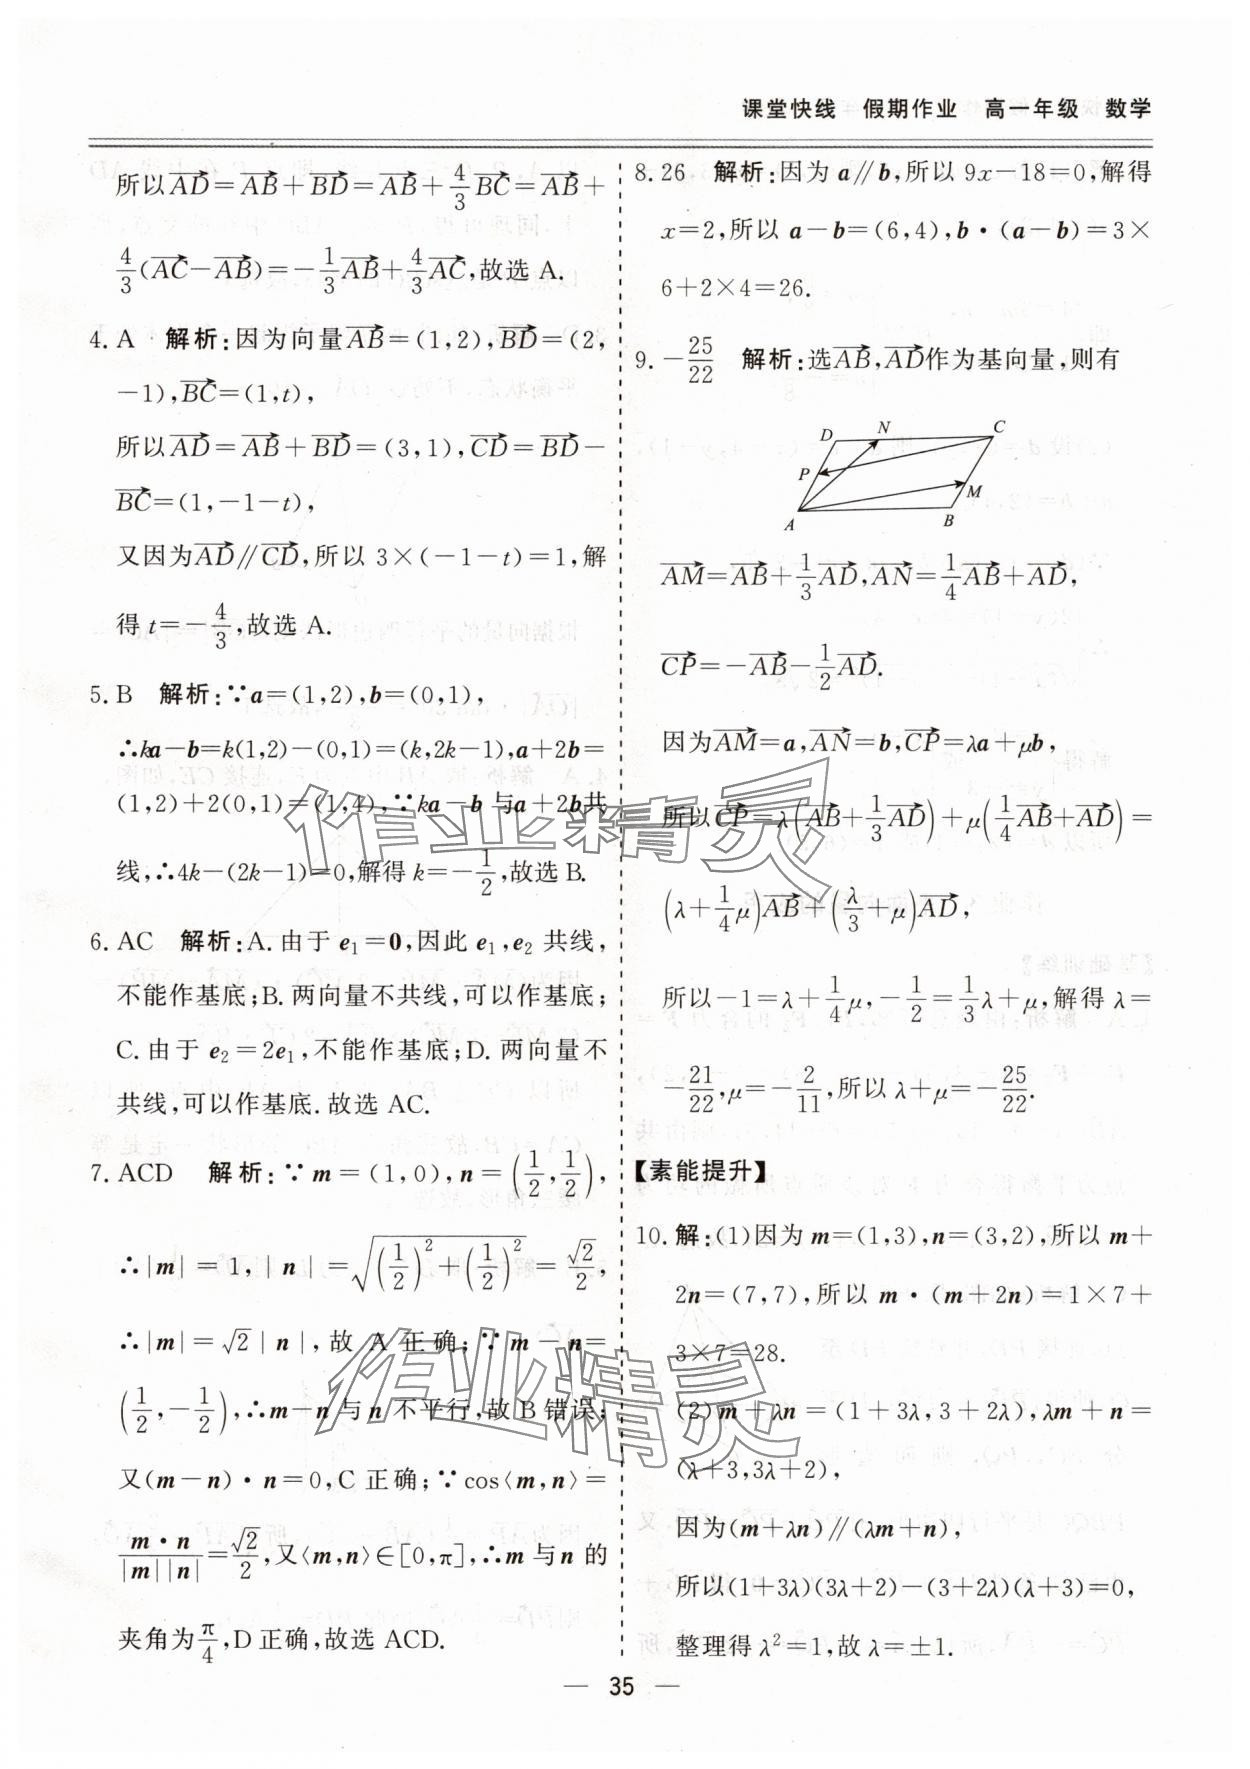 课堂快线 假期作业 高一年级 数学
所以AD→=AB→+BD→=AB→+4/3BC→=AB→+
4/3(AC→-AB→)=-1/3AB→+4/3AC→,故选 A.
4. A 解析:因为向量AB→=(1,2),BD→=(2,
-1),BC→=(1,t),
所以AD→=AB→+BD→=(3,1),CD→=BD→-
BC→=(1,-1-t),
又因为AD→∥CD→,所以 3×(-1-t)=1,解
得 t=-4/3,故选 A.
5. B 解析:∵a=(1,2),b=(0,1),
∴ka-b=k(1,2)-(0,1)=(k,2k-1),a+2b=
(1,2)+2(0,1)=(1,4),∵ka-b 与a+2b共
线,∴4k-(2k-1)=0,解得 k=-1/2,故选 B.
6. AC 解析:A. 由于 e₁=0,因此 e₁,e₂ 共线,
不能作基底;B. 两向量不共线,可以作基底;
C. 由于 e₂=2e₁,不能作基底;D. 两向量不
共线,可以作基底. 故选 AC.
7. ACD 解析:∵ m=(1,0),n=(1/2,1/2),
∴|m|=1,|n|=√((1/2)²+(1/2)²)=√2/2,
∴|m|=√2|n|,故 A 正确;∵ m-n=
(1/2,-1/2),∴m-n与n 不平行,故 B 错误;
又(m-n)·n=0,C 正确;∵ cos⟨m,n⟩=
m·n/|m||n|=√2/2,又⟨m,n⟩∈[0,π],∴m 与n 的
夹角为π/4,D 正确,故选 ACD.
8. 26 解析:因为 a∥b,所以 9x-18=0,解得
x=2,所以 a-b=(6,4),b·(a-b)=3×
6+2×4=26.
9. -25/22 解析:选AB→,AD→作为基向量,则有
D N C
P
M
A B
AM→=AB→+1/3AD→,AN→=1/4AB→+AD→,
CP→=-AB→-1/2AD→.
因为AM→=a,AN→=b,CP→=λa+μb,
所以CP→=λ(AB→+1/3AD→)+μ(1/4AB→+AD→)=
(λ+1/4μ)AB→+(λ/3+μ)AD→,
所以-1=λ+1/4μ,-1/2=1/3λ+μ,解得 λ=
-21/22,μ=-2/11,所以 λ+μ=-25/22.
【素能提升】
10. 解:(1)因为 m=(1,3),n=(3,2),所以 m+
2n=(7,7),所以 m·(m+2n)=1×7+
3×7=28.
(2)m+λn=(1+3λ,3+2λ),λm+n=
(λ+3,3λ+2),
因为(m+λn)∥(λm+n),
所以(1+3λ)(3λ+2)-(3+2λ)(λ+3)=0,
整理得 λ²=1,故 λ=±1.
作业精灵
作业精灵
— 35 —